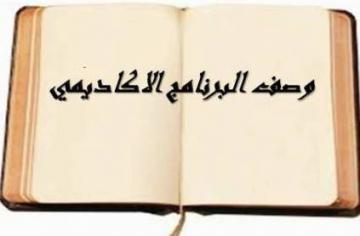 وصف البرنامج الاكاديمي